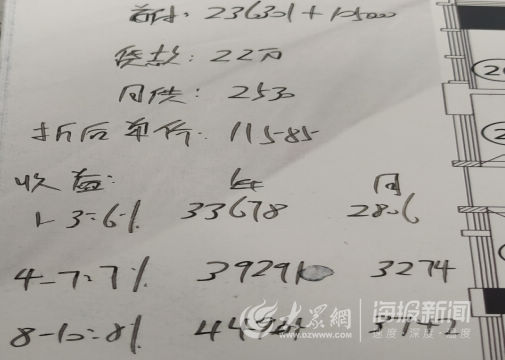 首付: 236301+105000
贷款: 22万
月供: 2530
折后单价: 11585
收益: 年 月
1-3=6% 33678 2806
4-7=7% 39291 3274
8-10=8%
大众网 海报新闻
www.dzwww.com 速度·深度·温度